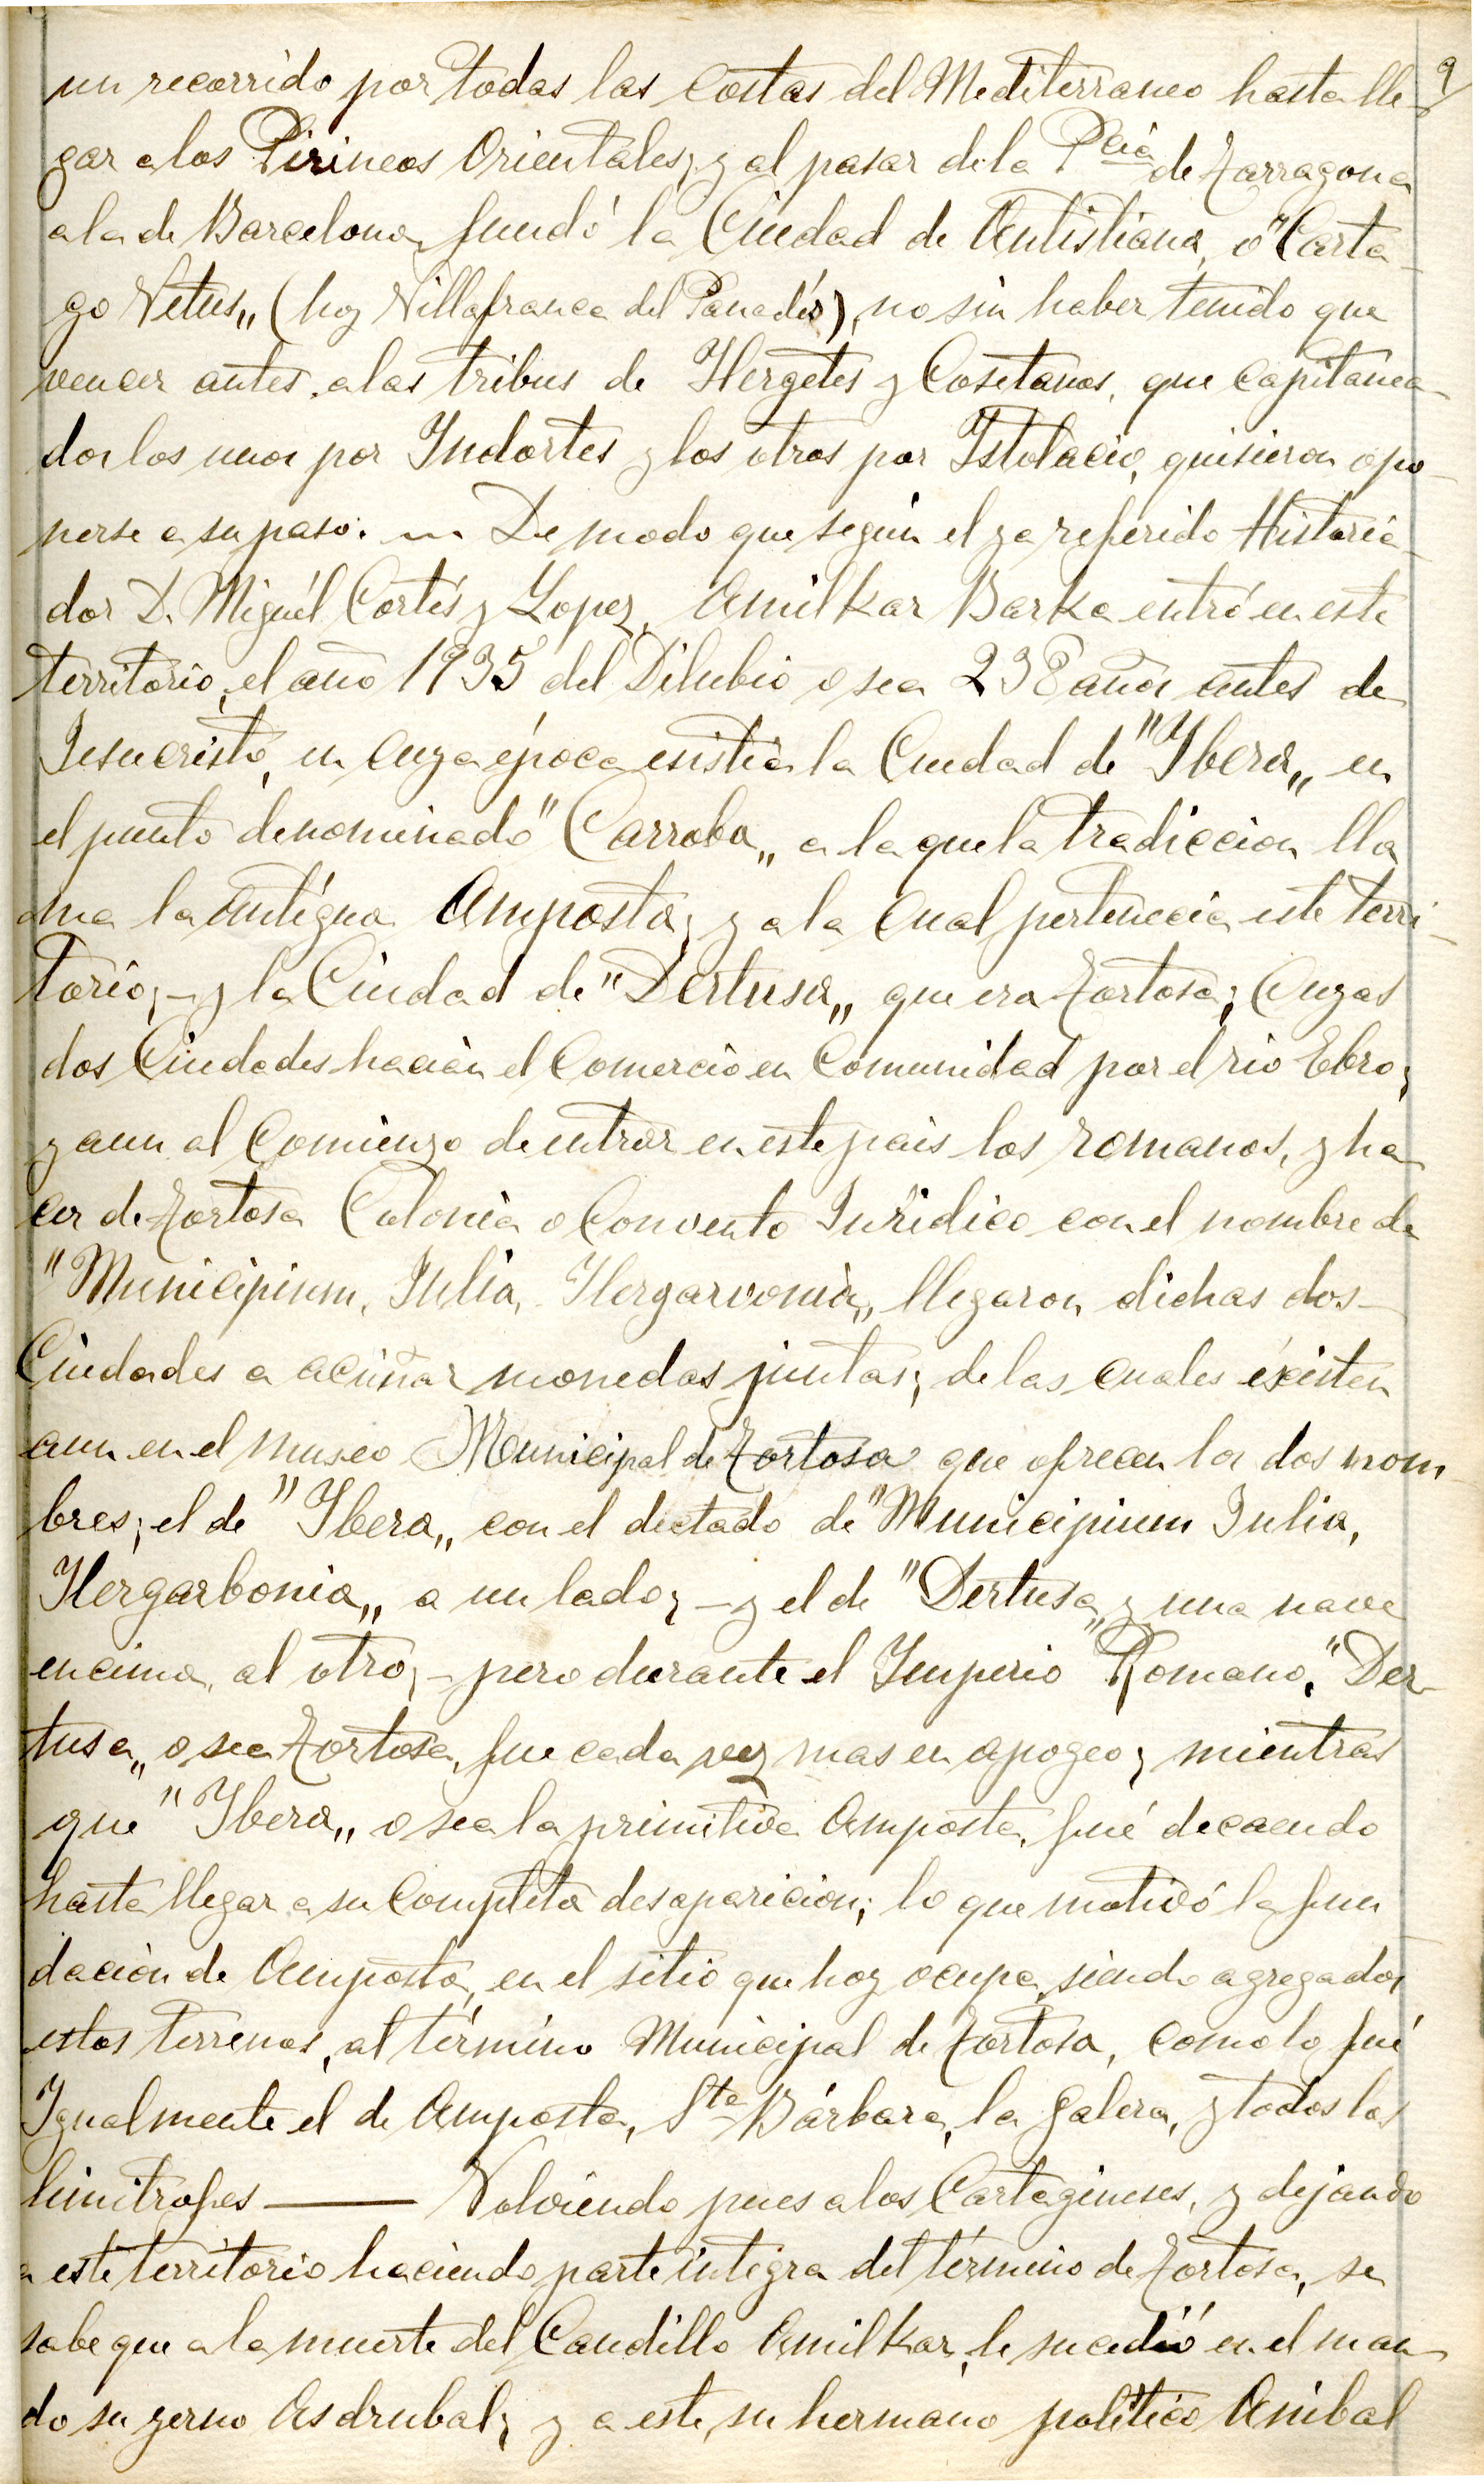 9
un recorrido por todas las costas del Mediterraneo hasta lle-
gar a los Pirineos Orientales, y al pasar de la Pcia de Tarragona
a la de Barcelona, fundó la Ciudad de Antistiana, o "Carta-
go Vetus„ (hoy Villafranca del Panadés), no sin haber tenido que
vencer antes, a las tribus de Ilergetes y Cosetanos, que capitanea-
dos los unos por Indortes y los otros por Istolacio, quisieron opo-
nerse a su paso. — De modo que según el ya referido Historia-
dor D. Miguél Cortés y Lopez, Amilkar Barka entró en este
territorio, el año 1935 del Dilubio o sea 238 años antes de
Jesucristo, en cuya época esistia la Ciudad de "Ybera„ en
el punto denominado "Carroba„ a la que la tradiccion lla
ma la antígua Amposta; y a la cual pertenecia este terri-
torio; - y la Ciudad de "Dertusa„ que era Tortosa; Cuyas
dos Ciudades hacian el Comercio en Comunidad por el rio Ebro;
y aun al Comienzo de entrar en este pais los romanos, y ha
cer de Tortosa Colonia o Convento Juridico con el nombre de
"Municipium, Julia, Ilergarvonia„ llegaron dichas dos-
Ciudades a acuñar monedas juntas; de las cuales éxisten
aun en el museo Municipal de Tortosa que ofrecen los dos nom-
bres; el de "Ybera„ con el dictado de "Municipium Julia,
Ilergarbonia„ a un lado; - y el de "Dertusa„ y una nave
encima, al otro; - pero durante el Imperio Romano, "Der-
tusa„ o sea Tortosa, fue cada vez mas en apogeo; mientras
que "Ybera„ o sea la primitiva Amposta, fué decaendo
hasta llegar a su completa desaparicion; lo que motivó la fun
dación de Amposta, en el sitio que hoy ocupa, siendo agregados
estos terrenos, al término Municipal de Tortosa, como lo fué
Igualmente el de Amposta, Sta Bárbara, la Galera, y todos los
limitrofes ——— Volviendo pues a los Cartagineses, y dejando
a este territorio haciendo parte integra del término de Tortosa, se
sabe que a la muerte del Caudillo Amilkar, le sucedió en el man
do su yerno Asdrubal; y a este, su hermano político Anibal